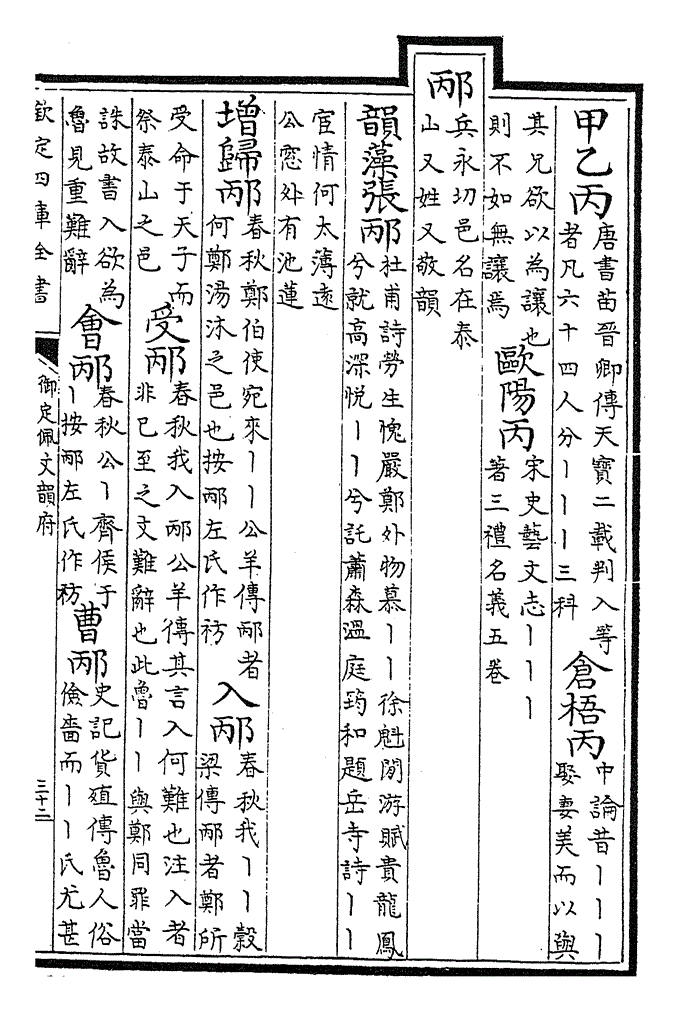 甲乙丙
唐書苗晉卿傳天寶二載判入等
者凡六十四人分丨丨丨三科
倉梧丙
中論昔丨丨丨
娶妻美而以與
其兄欲以為讓也
則不如無讓焉
歐陽丙
宋史藝文志丨丨丨
著三禮名義五卷
邴
兵永切邑名在泰
山又姓又敬韻
韻藻張邴
杜甫詩勞生愧嚴鄭外物慕丨丨徐魁閒游賦貴龍鳳
兮就高深悅丨丨兮託蕭森溫庭筠和題岳寺詩丨丨
宦情何太薄遠
公窓外有池蓮
增歸邴
春秋鄭伯使宛來丨丨公羊傳邴者
何鄭湯沐之邑也按邴左氏作祊
入邴
春秋我丨丨穀
梁傳邴者鄭所
受命于天子而
祭泰山之邑
受邴
春秋我入邴公羊傳其言入何難也注入者
非已至之文難辭也此魯丨丨與鄭同罪當
誅故書入欲為
魯見重難辭
會邴
春秋公丨齊侯于
丨按邴左氏作祊
曹邴
史記貨殖傳魯人俗
儉嗇而丨丨氏尤甚
欽定四庫全書
御定佩文韻府
三十二